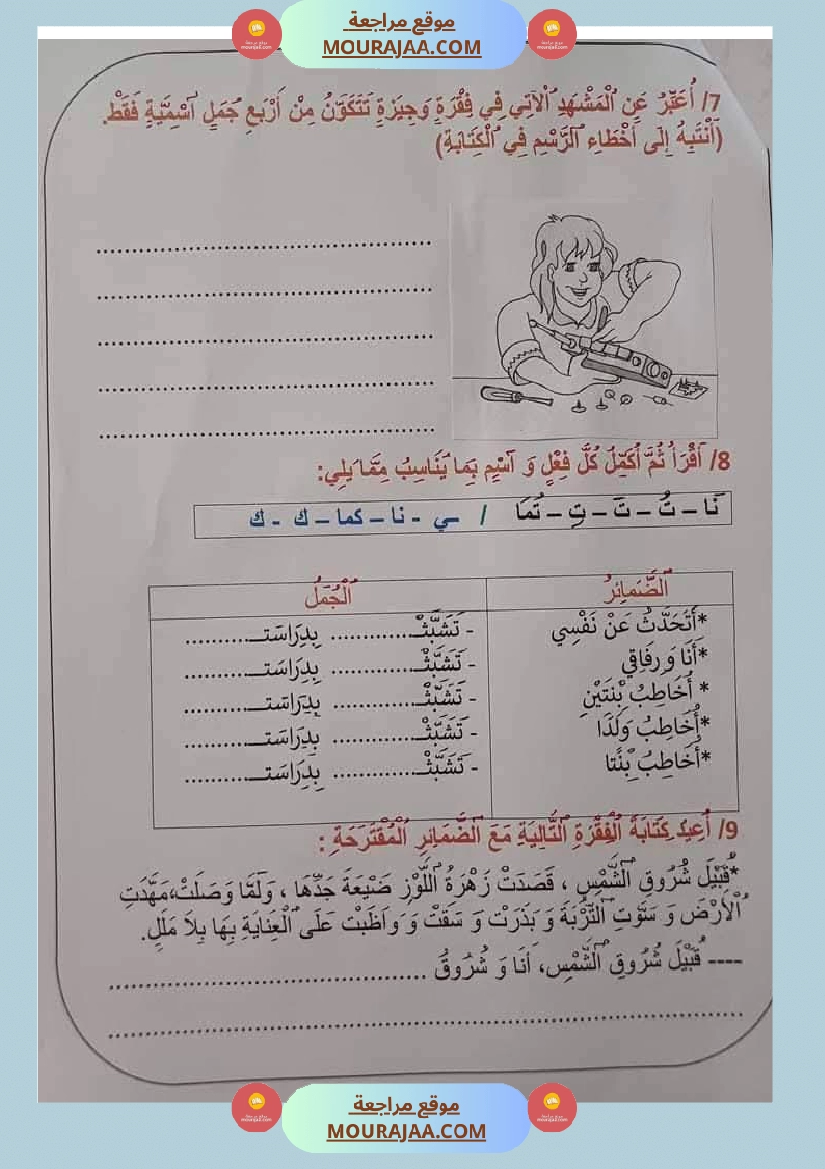 موقع مراجعة
MOURAJAA.COM
7/ أُعَبِّرُ عَنِ ٱلْمَشْهَدِ ٱلْآتِي فِي فِقْرَةٍ وَجِيزَةٍ تَتَكَوَّنُ مِنْ أَرْبَعِ جُمَلٍ ٱسْمِيَّةٍ فَقَطْ.
(أَنْتَبِهُ إِلَى أَخْطَاءِ ٱلرَّسْمِ فِي ٱلْكِتَابَةِ)
........................................
........................................
........................................
........................................
........................................
8/ ٱقْرَأْ ثُمَّ أُكَمِّلُ كُلَّ فِعْلٍ وَ ٱسْمٍ بِمَا يُنَاسِبُ مِمَّا يَلِي:
نَا – تُ – تَ – تِ – تُمَا / ـي - نا – كما – ك - ك
ٱلضَّمَائِرُ ٱلْجُمَلُ
*أَتَحَدَّثُ عَنْ نَفْسِي - تَشَبَّثْـ.............. بِدِرَاسَتـ..........
*أَنَا وَ رِفَاقِي - تَشَبَّثْـ.............. بِدِرَاسَتـ..........
* أُخَاطِبُ بِنْتَيْنِ - تَشَبَّثْـ.............. بِدِرَاسَتـ..........
*أُخَاطِبُ وَلَدًا - تَشَبَّثْـ.............. بِدِرَاسَتـ..........
*أُخَاطِبُ بِنْتًا - تَشَبَّثْـ.............. بِدِرَاسَتـ..........
9/ أُعِيدُ كِتَابَةَ ٱلْفِقْرَةِ ٱلتَّالِيَةِ مَعَ ٱلضَّمَائِرِ ٱلْمُقْتَرَحَةِ :
*قُبَيْلَ شُرُوقِ ٱلشَّمْسِ ، قَصَدَتْ زَهْرَةُ ٱللَّوْزِ ضَيْعَةَ جَدِّهَا ، وَلَمَّا وَصَلَتْ،مَهَّدَتِ
ٱلْأَرْضَ وَ سَوَّتِ ٱلتُّرْبَةَ وَ بَذَرَتْ وَ سَقَتْ وَ وَاظَبَتْ عَلَى ٱلْعِنَايَةِ بِهَا بِلاَ مَلَلٍ.
---- قُبَيْلَ شُرُوقِ ٱلشَّمْسِ، أَنَا وَ شُرُوقُ ........................................
................................................................................
موقع مراجعة
MOURAJAA.COM